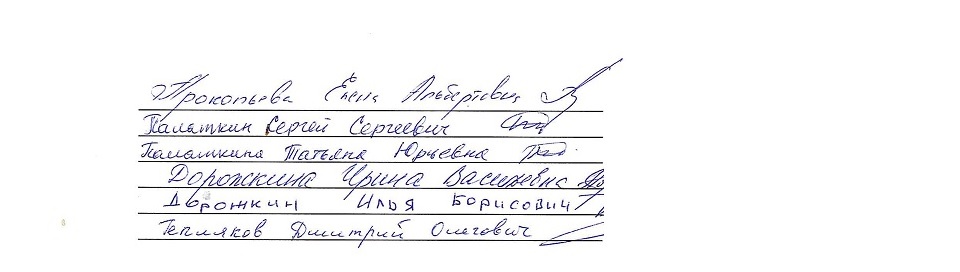 Прокопьева Елена Альбертовна
Палаткин Сергей Сергеевич
Палаткина Татьяна Юрьевна
Дорожкина Ирина Васильевна
Дорожкин Илья Борисович
Тепляков Дмитрий Олегович